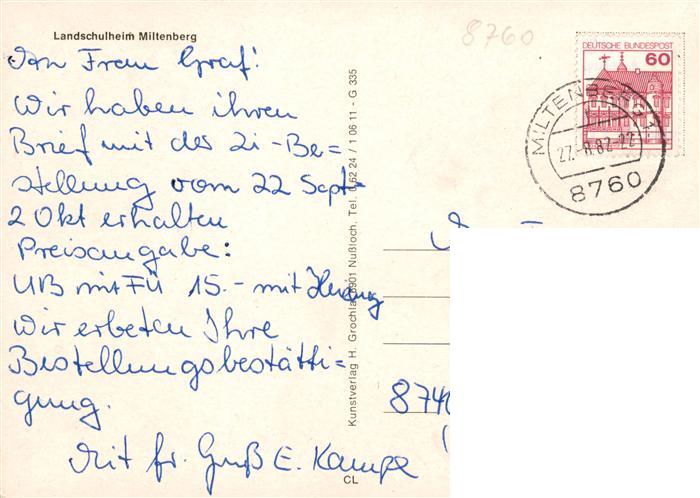 Landschulheim Miltenberg
8760
Frau Graf!
Wir haben ihren
Brief mit der Zi-Be=
stellung vom 22 Sept-
2 Okt erhalten
Preisangabe:
ÜB mit Fü 15.- mit Heizung
Wir erbeten Ihre
Bestellungsbestätti=
gung.
Mit fr. Gruß E. Kampe
Kunstverlag H. Grochla, 6901 Nußloch. Tel. 0 62 24 / 1 06 11 - G 335
CL
DEUTSCHE BUNDESPOST
60
MILTENBERG 1
27.-8.82-22
8760
874